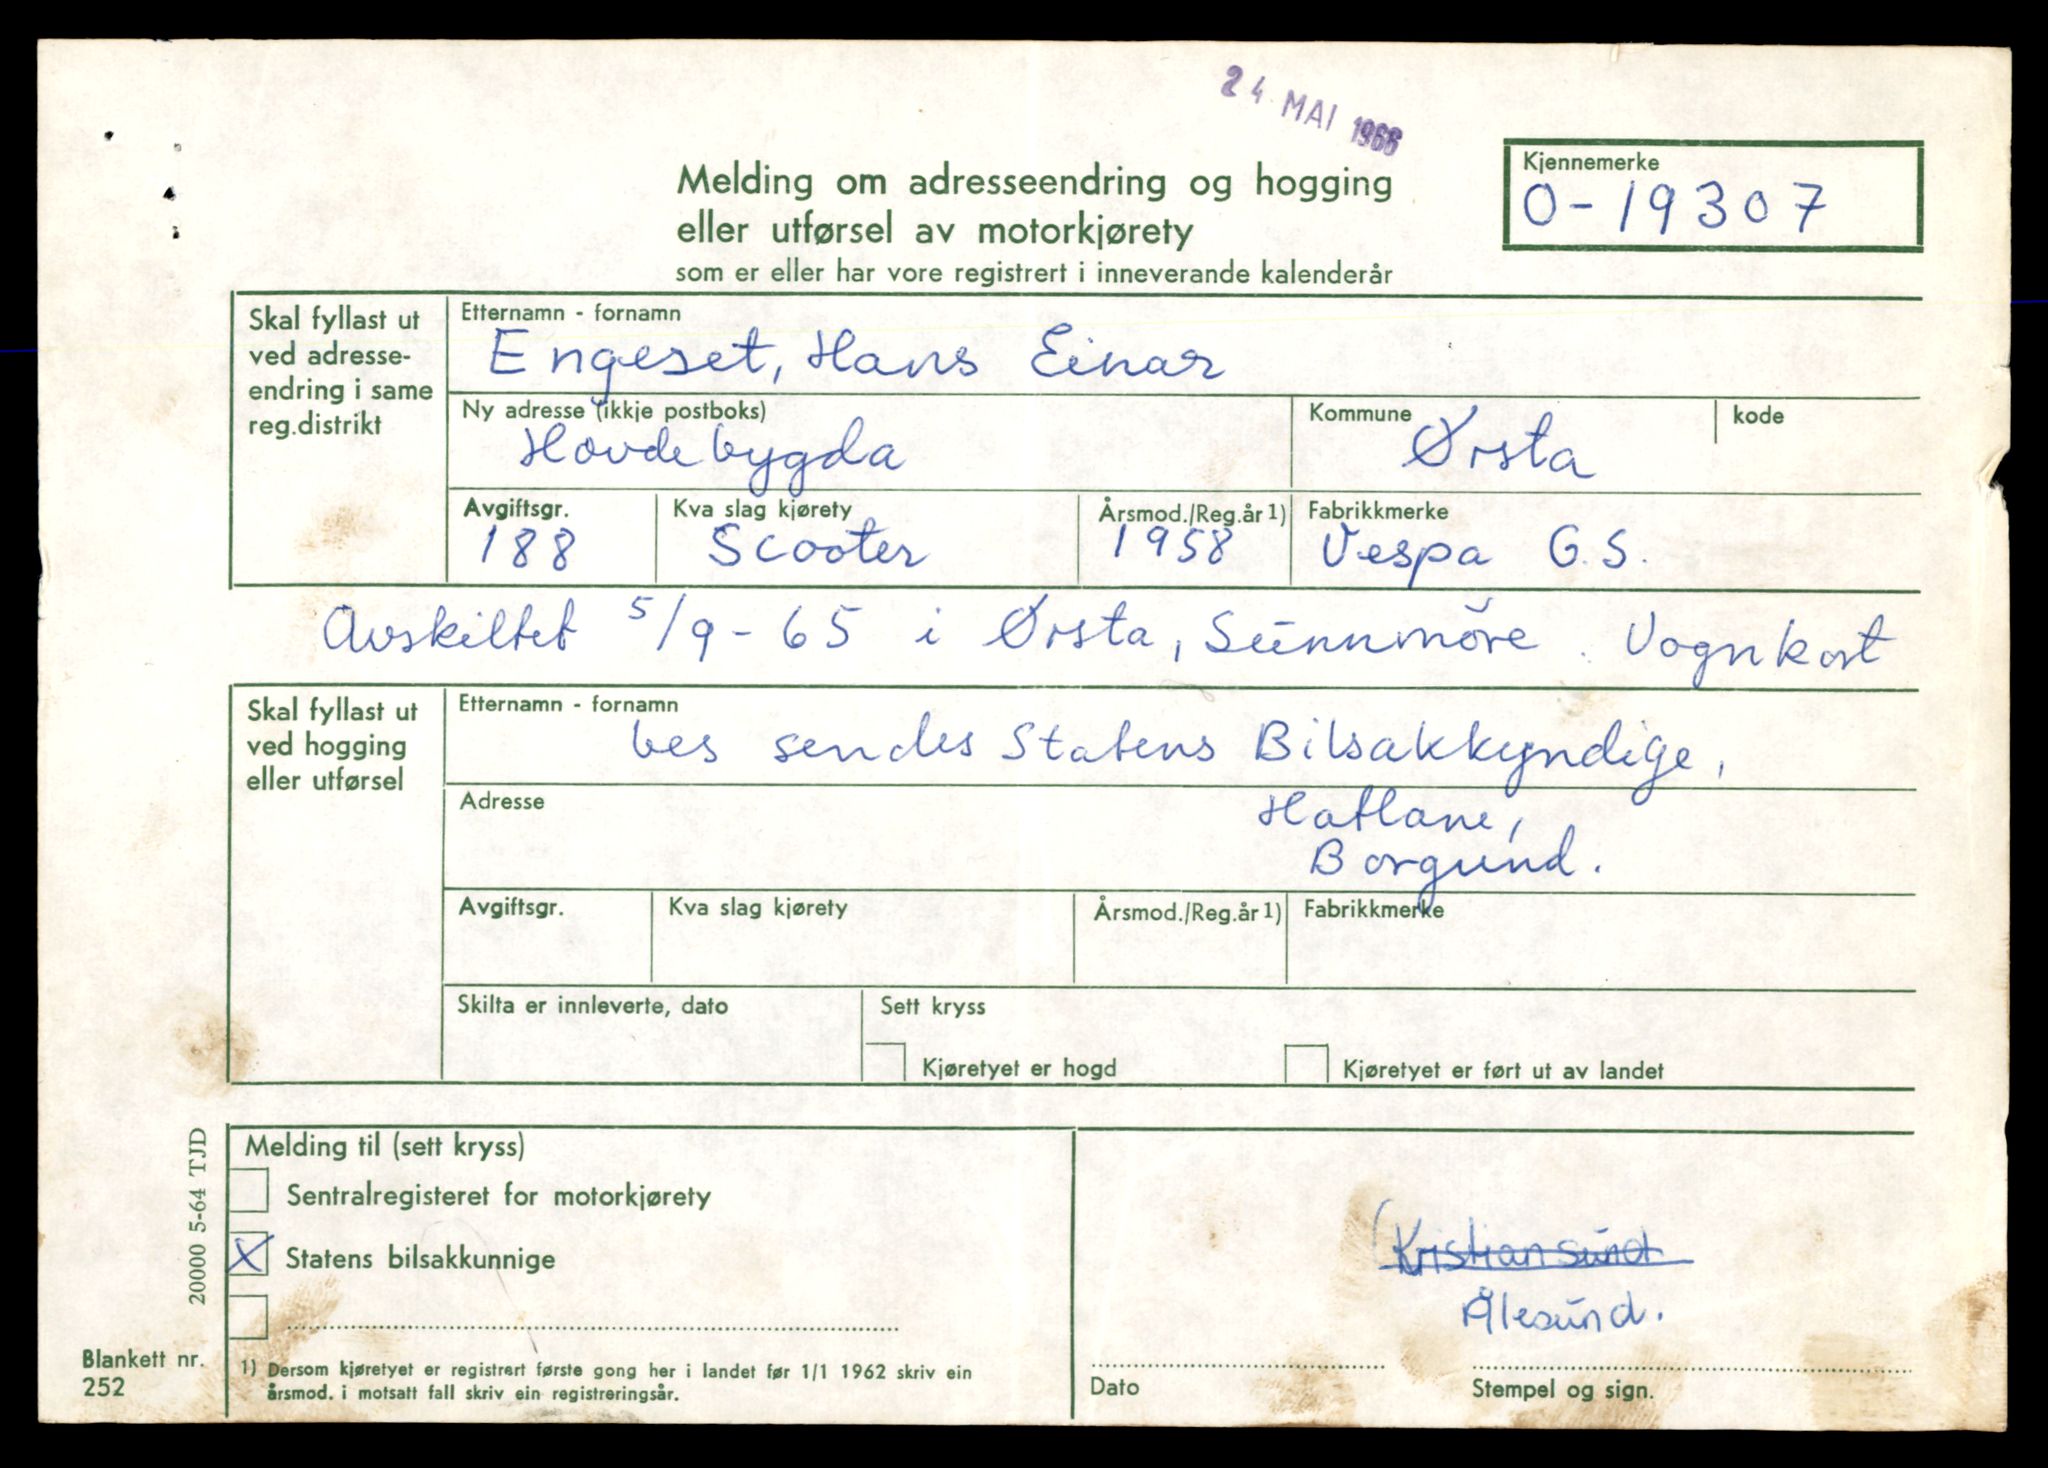 24 MAI 1966
Melding om adresseendring og hogging
eller utførsel av motorkjørety
som er eller har vore registrert i inneverande kalenderår
Kjennemerke
O-19307
Skal fyllast ut
ved adresse-
endring i same
reg.distrikt
Etternamn - fornamn
Engeset, Hans Einar
Ny adresse (ikkje postboks)
Hovdebygda
Kommune
Ørsta
kode
Avgiftsgr.
188
Kva slag kjørety
Scooter
Årsmod./Reg.år 1)
1958
Fabrikkmerke
Vespa G.S.
Avskiltet 5/9-65 i Ørsta, Sunnmöre. Vognkort
Skal fyllast ut
ved hogging
eller utførsel
Etternamn - fornamn
bes sendes Statens Bilsakkyndige,
Adresse
Hatlane,
Borgund.
Avgiftsgr.
Kva slag kjørety
Årsmod./Reg.år 1)
Fabrikkmerke
Skilta er innleverte, dato
Sett kryss
Kjøretyet er hogd
Kjøretyet er ført ut av landet
Melding til (sett kryss)
Sentralregisteret for motorkjørety
X Statens bilsakkunnige
1) Dersom kjøretyet er registrert første gong her i landet før 1/1 1962 skriv ein
årsmod. i motsatt fall skriv ein registreringsår.
Kristiansund
Ålesund.
Dato
Stempel og sign.
20000 5-64 TJD
Blankett nr.
252